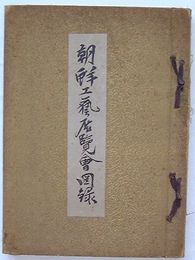 朝鮮工藝展覽會圖錄